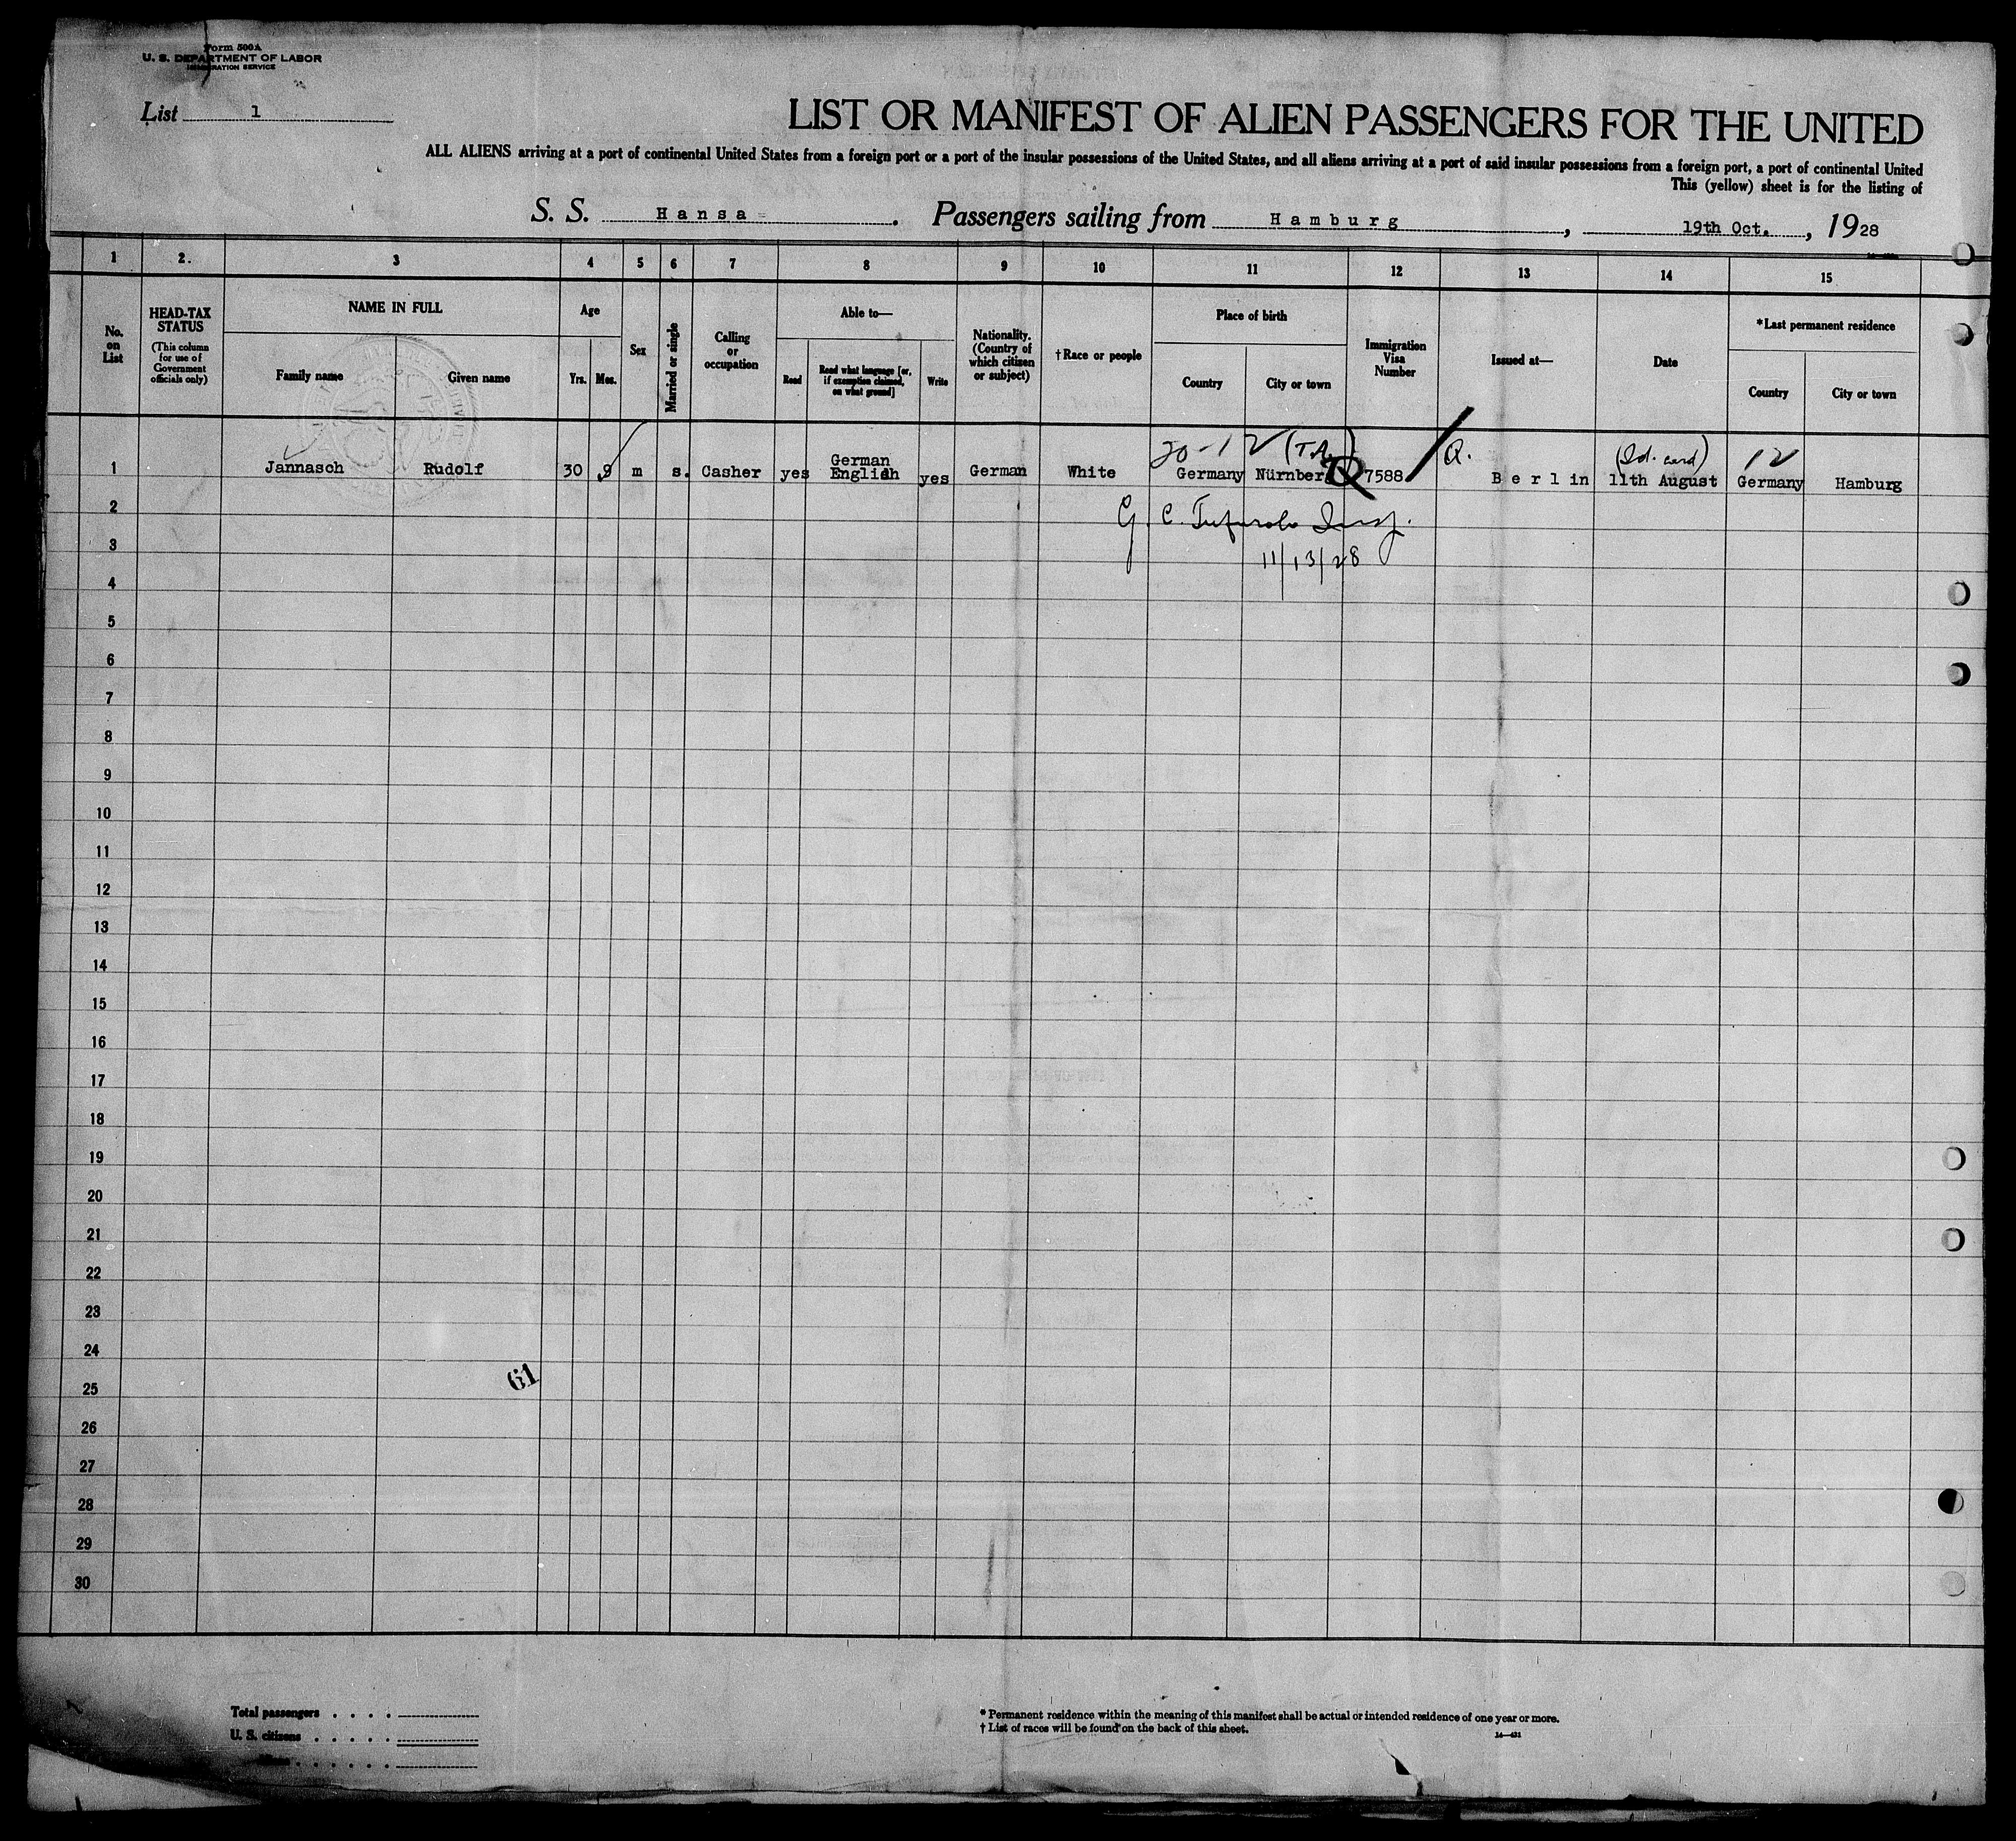 Form 500A
U. S. DEPARTMENT OF LABOR
IMMIGRATION SERVICE
List 1
LIST OR MANIFEST OF ALIEN PASSENGERS FOR THE UNITED
ALL ALIENS arriving at a port of continental United States from a foreign port or a port of the insular possessions of the United States, and all aliens arriving at a port of said insular possessions from a foreign port, a port of continental United
This (yellow) sheet is for the listing of
S. S. Hansa . Passengers sailing from Hamburg , 19th Oct. , 1928
1 2. 3 4 5 6 7 8 9 10 11 12 13 14 15
No. on List
HEAD-TAX STATUS (This column for use of Government officials only)
NAME IN FULL
Family name Given name
Age
Yrs. Mos.
Sex
Married or single
Calling or occupation
Able to—
Read Read what language [or, if exemption claimed, on what ground] Write
Nationality. (Country of which citizen or subject)
†Race or people
Place of birth
Country City or town
Immigration Visa Number
Issued at—
Date
*Last permanent residence
Country City or town
20-1 V (T.A.) Q. (Id. card) 12
1 Jannasch Rudolf 30 9 m s. Casher yes German English yes German White Germany Nürnberg Q 7588 / Berlin 11th August Germany Hamburg
2 G. C. Insp.
3 11/13/28
4
5
6
7
8
9
10
11
12
13
14
15
16
17
18
19
20
21
22
23
24
61
25
26
27
28
29
30
Total passengers . . . .
U. S. citizens . . . . .
* Permanent residence within the meaning of this manifest shall be actual or intended residence of one year or more.
† List of races will be found on the back of this sheet.
14—431